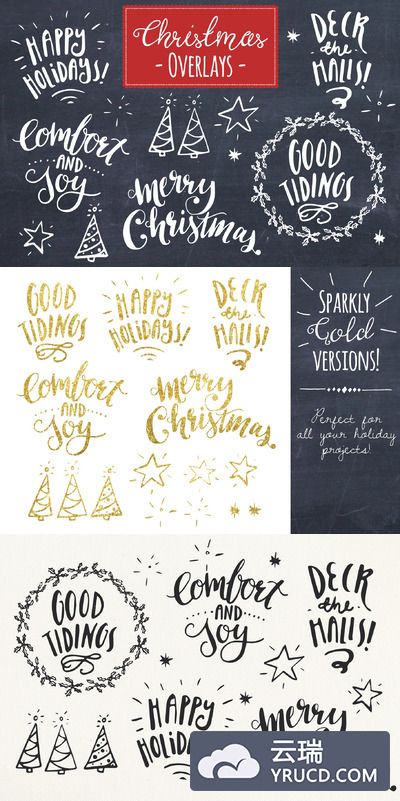 HAPPY
HOLIDAYS!
Christmas
OVERLAYS
DECK
the
HALLS!
Comfort
AND
Joy
merry
Christmas.
GOOD
TIDINGS
GOOD
TIDINGS
HAPPY
HOLIDAYS!
DECK
the
HALLS!
Comfort
AND
Joy
merry
Christmas.
SPARKLY
Gold
VERSIONS!
Perfect for
all your holiday
projects!
GOOD
TIDINGS
Comfort
AND
Joy
DECK
the
HALLS!
HAPPY
HOLIDA
merry
云瑞
YRUCD.COM